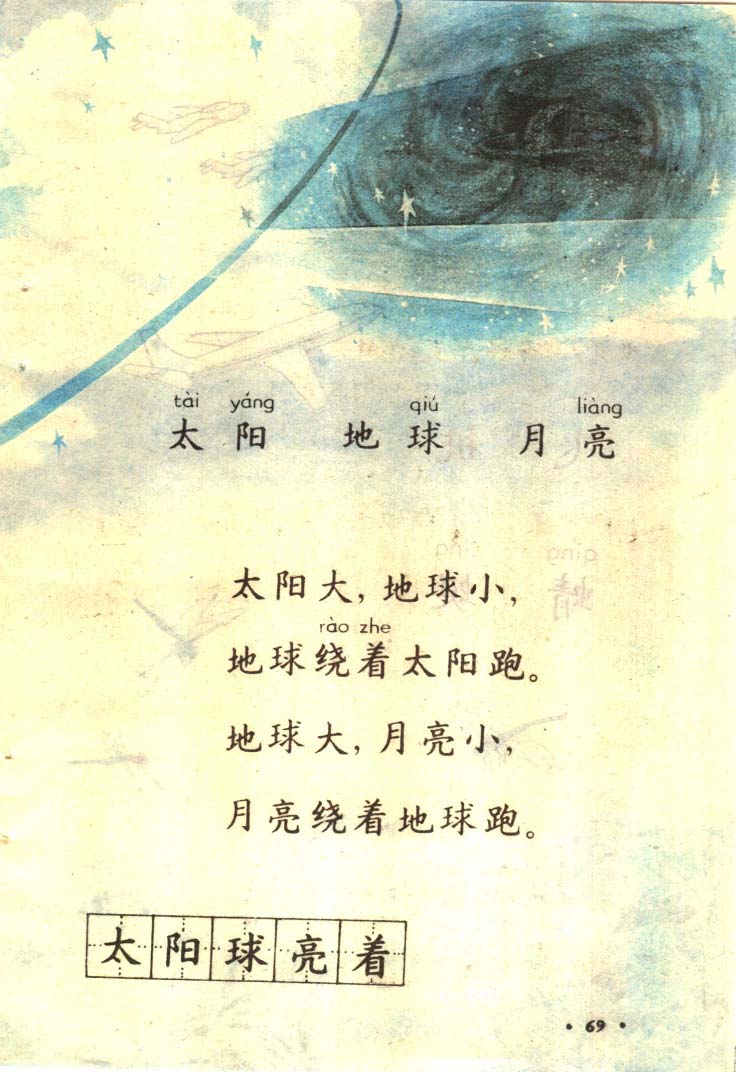 tài yáng qiú liàng
太阳 地球 月亮
太阳大，地球小，
rào zhe
地球绕着太阳跑。
地球大，月亮小，
月亮绕着地球跑。
太阳球亮着
· 69 ·